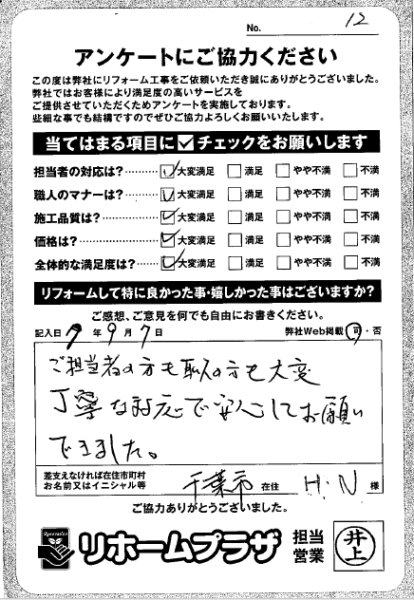 No. 12
アンケートにご協力ください
この度は弊社にリフォーム工事をご依頼いただき誠にありがとうございました。
弊社ではお客様により満足度の高いサービスを
ご提供させていただくためアンケートを実施しております。
些細な事でも結構ですのでぜひご協力よろしくお願いいたします。
当てはまる項目に☑チェックをお願いします
担当者の対応は?………☑大変満足 □満足 □やや不満 □不満
職人のマナーは?………☑大変満足 □満足 □やや不満 □不満
施工品質は?……………☑大変満足 □満足 □やや不満 □不満
価格は?…………………☑大変満足 □満足 □やや不満 □不満
全体的な満足度は?……☑大変満足 □満足 □やや不満 □不満
リフォームして特に良かった事・嬉しかった事はございますか?
ご感想、ご意見を何でも自由にお書きください。
記入日 年 9月 7日 弊社Web掲載 可・否
ご担当者の方も職人の方も大変
丁寧な対応で安心してお願い
できました。
差支えなければ在住市町村
お名前又はイニシャル等 千葉市 在住 H.N 様
ご協力ありがとうございました。
リホームプラザ 担当営業 井上